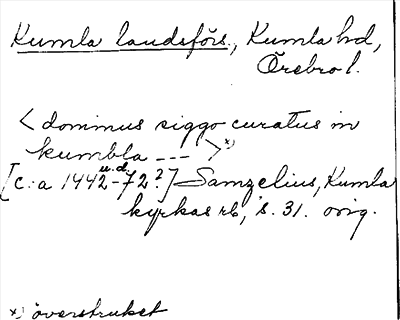 Kumla landsförs., Kumla hd,
Örebro l.
< dominus siggo curatus in
kumbla --- > x)
[c:a 1442 u.d. -72?] Samzelius, Kumla
kyrkas rb, s. 31. orig.
x) överstruket